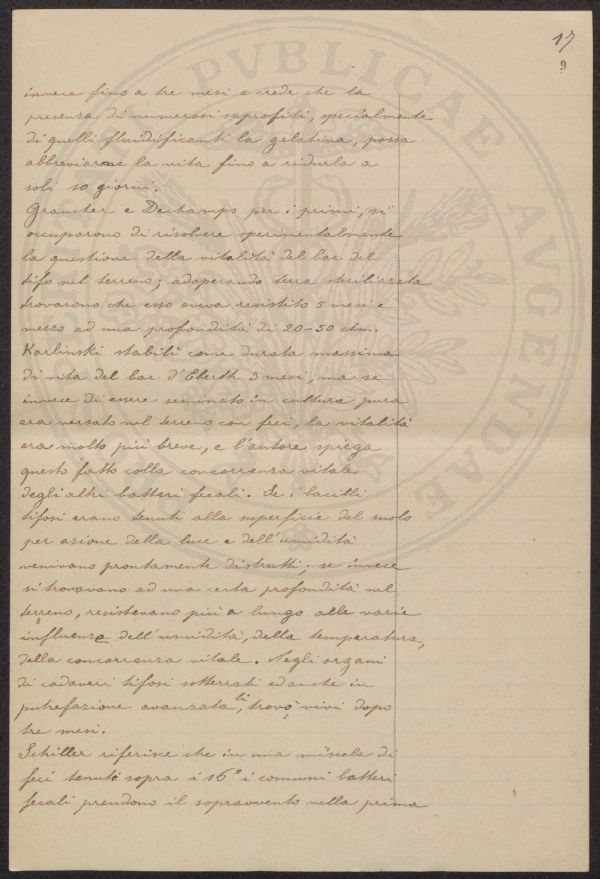 17
9
invece fino a tre mesi e crede che la
presenza di numerosi saprofiti, specialmente
di quelli fluidificanti la gelatina, possa
abbreviarne la vita fino a ridurla a
soli 10 giorni.
Grancher e Dechamps per i primi, si
occuparono di risolvere sperimentalmente
la questione della vitalità del bac. del
tifo nel terreno; adoperando terra sterilizzata
trovarono che esso aveva resistito 5 mesi e
mezzo ad una profondità di 20-50 ctm.
Karlinski stabilì come durata massima
di vita del bac. d'Eberth 3 mesi, ma se
invece di essere seminato in cultura pura
era versato nel terreno con feci, la vitalità
era molto più breve, e l'autore spiega
questo fatto colla concorrenza vitale
degli altri batteri fecali. Se i bacilli
tifosi erano tenuti alla superficie del suolo
per azione della luce e dell'umidità
venivano prontamente distrutti; se invece
si trovavano ad una certa profondità nel
terreno, resistevano più a lungo alle varie
influenze dell'umidità, della temperatura,
della concorrenza vitale. Negli organi
di cadaveri tifosi sotterrati ed anche in
putrefazione avanzata, li trovò vivi dopo
tre mesi.
Schiller riferisce che in una miscela di
feci tenute sopra i 16° i comuni batteri
fecali prendono il sopravvento nella prima
PVBLICAE
AVGENDAE